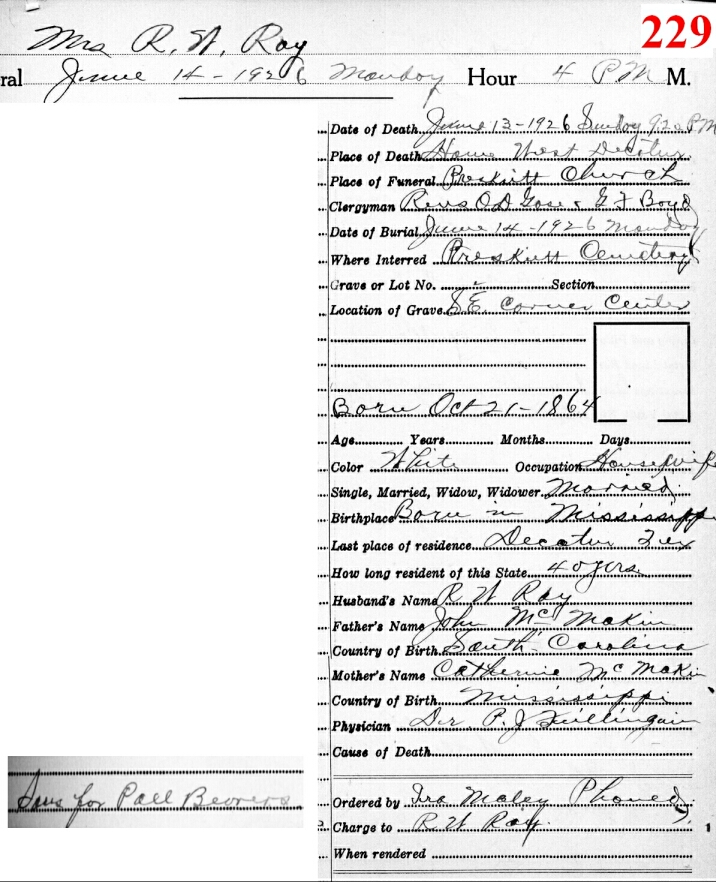 229
Mrs R. W. Ray
ral June 14-1926 Monday Hour 4 PM M.
Date of Death June 13-1926 Sunday 9.20 PM
Place of Death Home West Decatur
Place of Funeral Preskitt Church
Clergyman Revs O.D. Gose & G F Boyd
Date of Burial June 14-1926 Monday
Where Interred Preskitt Cemetery
Grave or Lot No. Section
Location of Grave S.E. Corner Center
Born Oct 21-1864
Age Years Months Days
Color White Occupation Housewife
Single, Married, Widow, Widower Married
Birthplace Born in Mississipp
Last place of residence Decatur Tex
How long resident of this State 40 yrs.
Husband's Name R W Ray
Father's Name John McMakin
Country of Birth South Carolina
Mother's Name Catherine McMakin
Country of Birth Mississippi
Physician Dr. P. J.
Cause of Death
Sons for Pall Bearers
Ordered by Ira Maley Phoned
Charge to R W Ray
When rendered